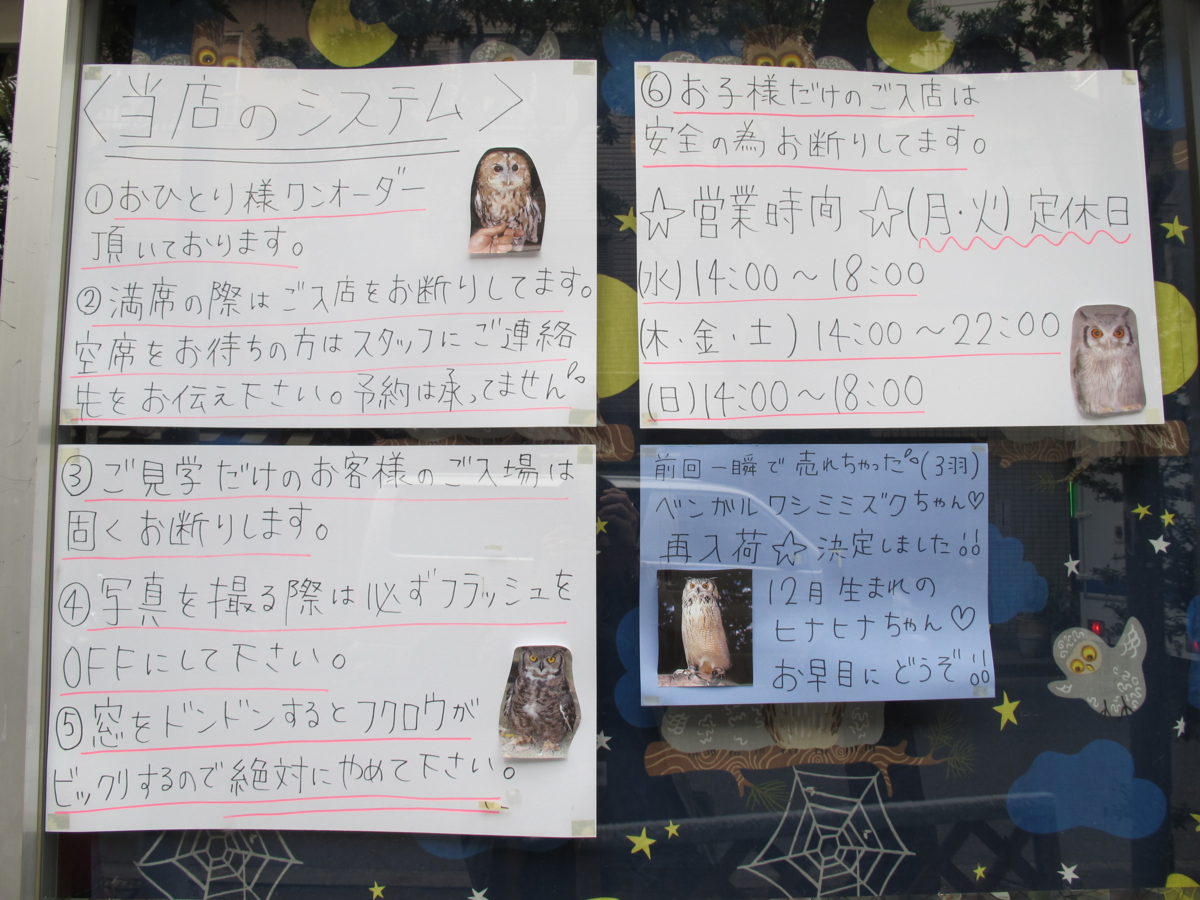 〈当店のシステム〉
①おひとり様ワンオーダー
頂いております。
②満席の際はご入店をお断りしてます。
空席をお待ちの方はスタッフにご連絡
先をお伝え下さい。予約は承ってません。
③ご見学だけのお客様のご入場は
固くお断りします。
④写真を撮る際は必ずフラッシュを
OFFにして下さい。
⑤窓をドンドンするとフクロウが
ビックリするので絶対にやめて下さい。
⑥お子様だけのご入店は
安全の為お断りしてます。
☆営業時間 ☆(月・火)定休日
(水)14:00～18:00
(木・金・土)14:00～22:00
(日)14:00～18:00
前回一瞬で売れちゃった(3羽)
ベンガルワシミミズクちゃん♡
再入荷☆決定しました!!
12月生まれの
ヒナヒナちゃん♡
お早目にどうぞ!!